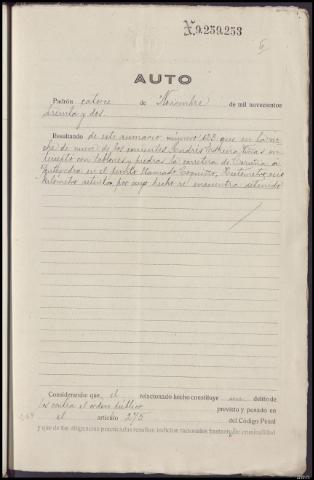 X.9.259.253
6
AUTO
Padrón catorce de Noviembre de mil novecientos
treinta y dos.
Resultando de este sumario número 123 que en la no-
che de nueve de los corrientes Andrés
con tablones y piedras la carretera de Coruña a
en el punto llamado kilómetro
kilómetro setenta, por cuyo hecho se encuentra detenido
Considerando que, el relacionado hecho constituye un delito de
los contra el orden público previsto y penado en
el artículo 275 del Código Penal
y que de las diligencias practicadas resultan indicios racionales bastantes de criminalidad